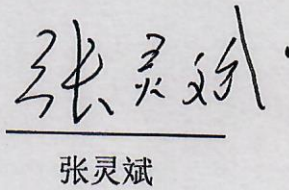 张灵斌
张灵斌